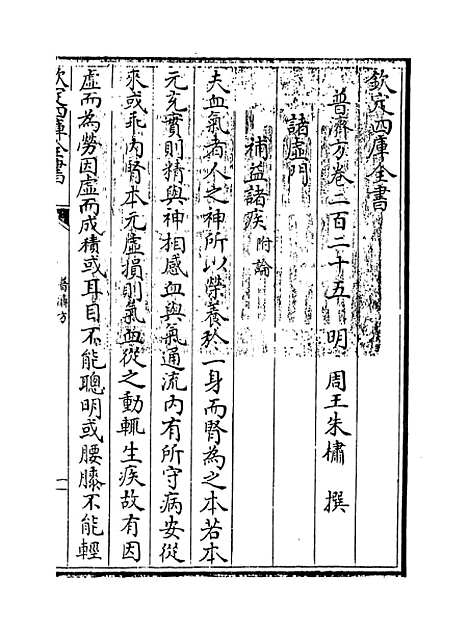 欽定四庫全書
普濟方卷二百二十五　明　周王朱橚　撰
諸虛門
補益諸疾附論
夫血氣者人之神所以榮養於一身而腎為之本若本
元充實則精與神相感血與氣通流内有所守病安從
來或乖内腎本元虛損則氣血從之動輒生疾故有因
虛而為勞因虛而成積或耳目不能聰明或腰膝不能輕
欽定四庫全書
普濟方
一